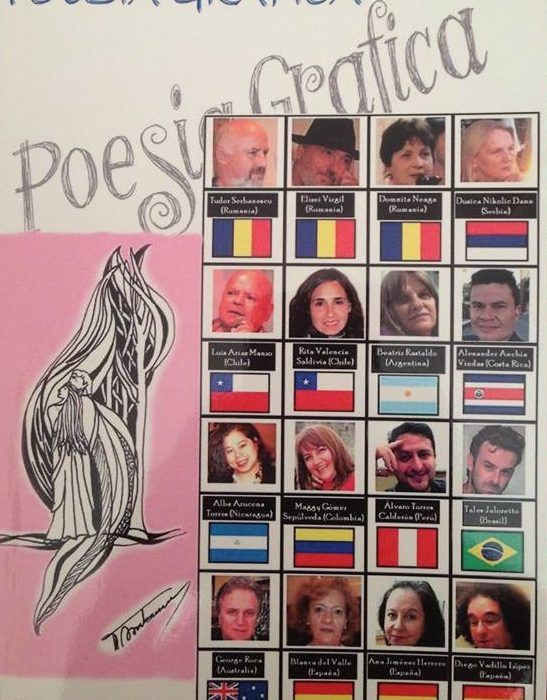 POESIA GRAFICA
Poesia Grafica
Tudor Serbanescu
(Rumania)
Elisei Virgil
(Rumania)
Domnita Neaga
(Rumania)
Dusica Nikolic Dann
(Serbia)
Luis Arias Manzo
(Chile)
Rita Valencia
Saldivia (Chile)
Beatriz Rastaldo
(Argentina)
Alexander Anchia
Vindas (Costa Rica)
Alba Azucena
Torres (Nicaragua)
Maggy Gómez
Sepúlveda (Colombia)
Álvaro Torres
Calderón (Perú)
Tales Jaloretto
(Brasil)
George Roca
(Australia)
Blanca del Valle
(España)
Ana Jiménez Herrero
(España)
Diego Vadillo López
(España)